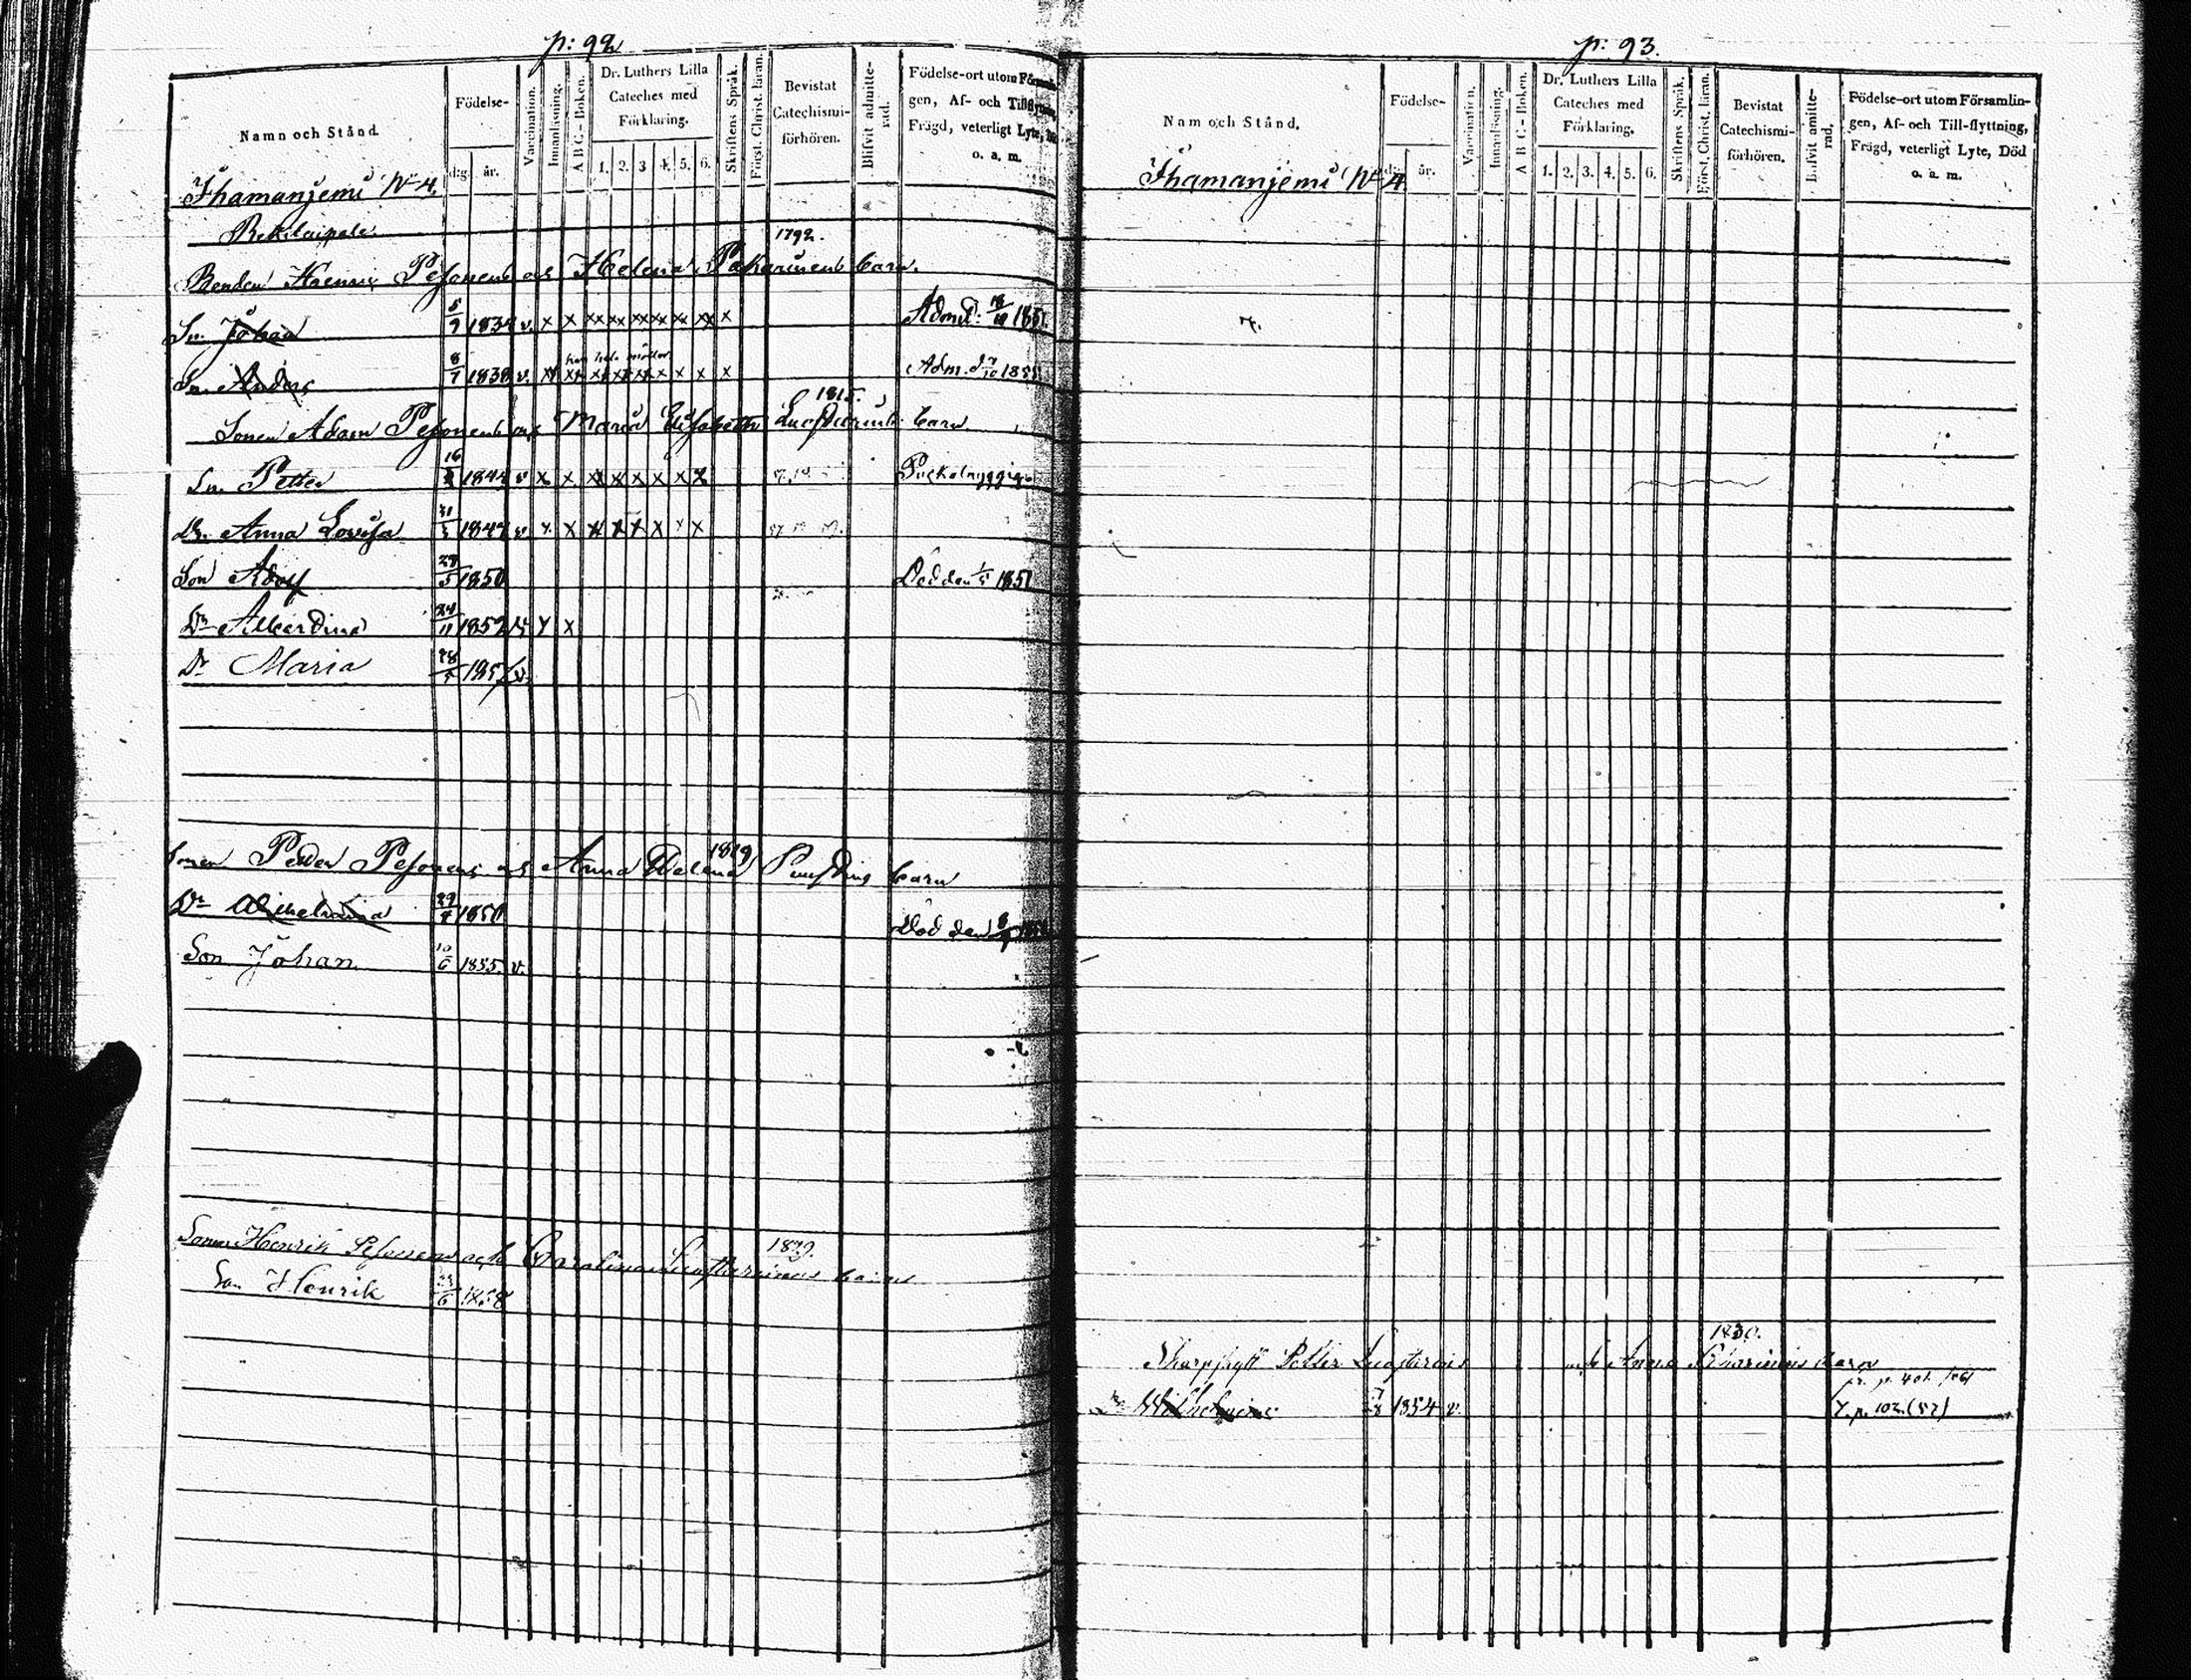 p: 92
Namn och Stånd.
Födelse-
dag.
år.
Vaccination.
Innanläsning.
A B C - Boken.
Dr. Luthers Lilla
Cateches med
Förklaring.
1. 2. 3 4. 5. 6.
Skriftens Språk.
Först. Christ. läran.
Bevistat
Catechismi-
förhören.
Blifvit admitte-
rad.
Födelse-ort utom Församlin-
gen, Af- och Tillflyttning,
Frägd, veterligt Lyte,
o. a. m.
Ihamaniemi No 4.
1792.
Bonden Henric Pesonens och Helena Pakarinens barn.
Sn. Johan 5/9 1834 v. x x xx xx xx xx xx xx x Admit: 1851.
Sn. Anders 8/7 1838 v. Adm. d 7/10 1855
1815.
Sonen Adam Pesonens och Maria Elisabeth barn
Sn. Petter 16 1844 v x x x x x x x x Puckelryggig
Dr. Anna Lovisa 31 1847 v x x x x x x x x
Son Adolf 29/5 1850 Död den 1851
Dr Albertina 24/11 1852 x x
Dr Maria 28 1857 v.
1819
Sonen Peder Pesonens och Anna Helena barn
Dr Wilhelmina 29 1850 Död den
Son Johan 10/6 1855. v.
1829.
Sonen Henrik Pesonens och Carolina barn
Son Henrik 6 1858
p: 93.
Namn och Stånd.
Födelse-
år.
Vaccination.
Innanläsning.
A B C - Boken.
Dr. Luthers Lilla
Cateches med
Förklaring.
1. 2. 3. 4. 5. 6.
Skriftens Språk.
Först. Christ. läran.
Bevistat
Catechismi-
förhören.
Blifvit amitte-
rad.
Födelse-ort utom Församlin-
gen, Af- och Till-flyttning,
Frägd, veterligt Lyte, Död
o. a. m.
Ihamaniemi No 4
1830.
Petter och Anna barn
fr. p. 401.
Dr Wilhelmina 7/8 1854 v. p. 102. (57)